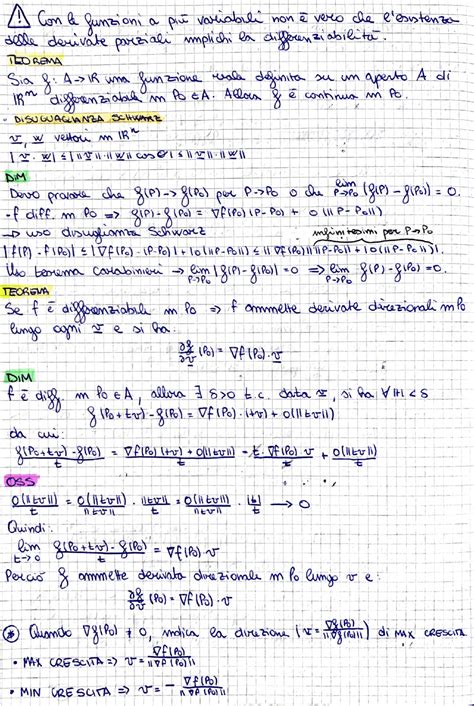 ⚠ Con le funzioni a più variabili non è vero che l'esistenza
delle derivate parziali implichi la differenziabilità.
TEOREMA
Sia f: A→IR una funzione reale definita su un aperto A di
IRⁿ differenziabile in P₀∈A. Allora f è continua in P₀.
- DISUGUAGLIANZA SCHWARZ
v, w vettori in IRⁿ
|v · w| ≤ ||v||·||w|| cos θ| ≤ ||v||·||w||
DIM
Devo provare che f(P)→f(P₀) per P→P₀ o che lim P→P₀ (f(P) - f(P₀)) = 0.
- f diff. in P₀ => f(P) - f(P₀) = ∇f(P₀)(P-P₀) + o(||P-P₀||)
→ uso disuglianza Schwarz
infinitesimi per P→P₀
|f(P) - f(P₀)| ≤ |∇f(P₀)·(P-P₀)| + |o(||P-P₀||)| ≤ ||∇f(P₀)||||P-P₀|| + |o(||P-P₀||)|.
Uso teorema carabinieri → lim P→P₀ |f(P) - f(P₀)| = 0 => lim P→P₀ f(P) - f(P₀) = 0.
TEOREMA
Se f è differenziabile in P₀ => f ammette derivate direzionali in P₀
lungo ogni v e si ha.
∂f/∂v (P₀) = ∇f(P₀)·v
DIM
f è diff. in P₀∈A, allora ∃ δ>0 t.c. data v, si ha ∀|t|<δ
f(P₀+tv) - f(P₀) = ∇f(P₀)·(tv) + o(||tv||)
da cui:
f(P₀+tv) - f(P₀) / t = ∇f(P₀)(tv) + o(||tv||) / t = t·∇f(P₀)·v / t + o(||tv||) / t
OSS
o(||tv||) / t = o(||tv||) / ||tv|| · ||tv|| / t = o(||tv||) / ||tv|| · |t| / t → 0
Quindi:
lim t→0 f(P₀+tv) - f(P₀) / t = ∇f(P₀)·v
Perciò f ammette derivata direzionale in P₀ lungo v e:
∂f/∂v (P₀) = ∇f(P₀)·v
* Quando ∇f(P₀) ≠ 0, indica la direzione (v = ∇f(P₀) / ||∇f(P₀)||) di MAX CRESCITA
• MAX CRESCITA => v = ∇f(P₀) / ||∇f(P₀)||
• MIN CRESCITA => v = - ∇f(P₀) / ||∇f(P₀)||